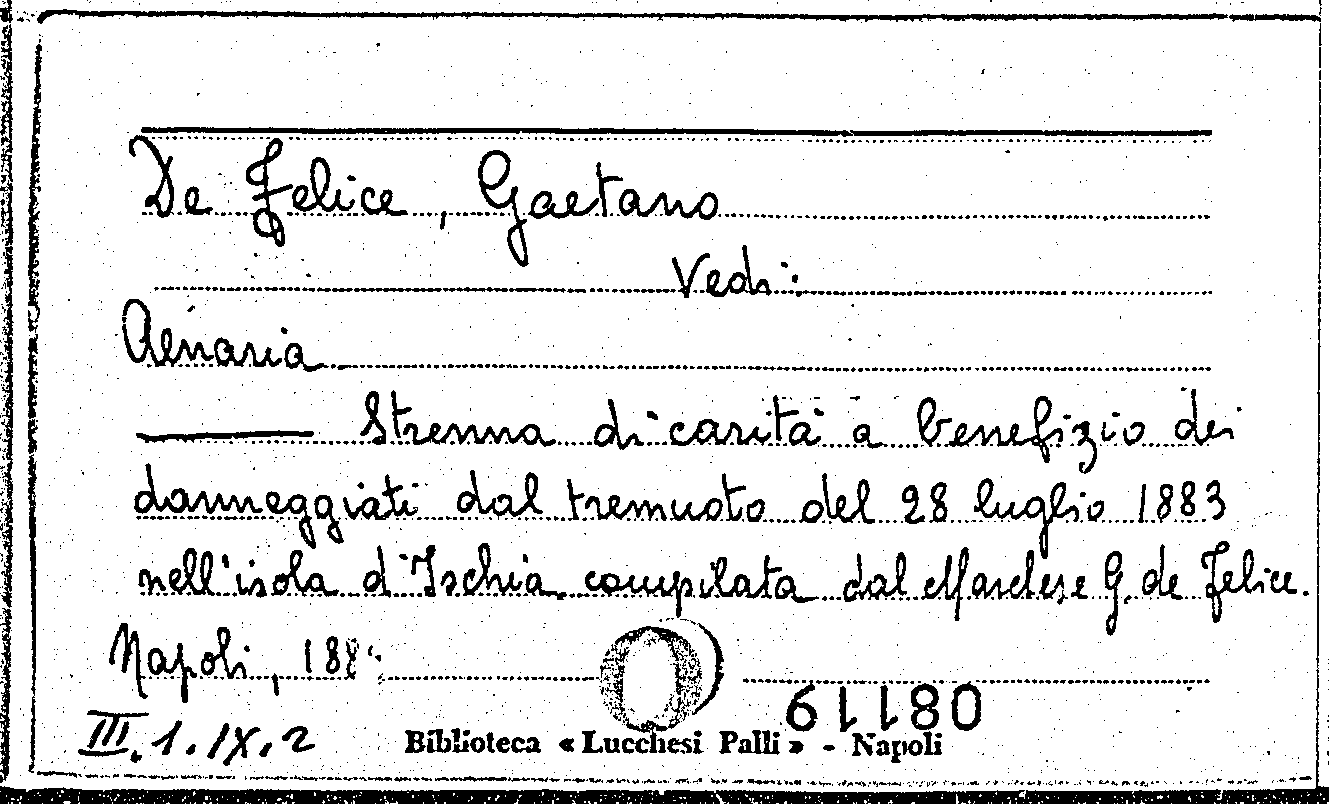 De Felice, Gaetano
Vedi:
Aenaria
——— Strenna di carità a benefizio dei
danneggiati dal tremuoto del 28 luglio 1883
nell'isola d'Ischia compilata dal Marchese G. de Felice.
Napoli,
08119
III.1.IX.2
Biblioteca « Lucchesi Palli » - Napoli